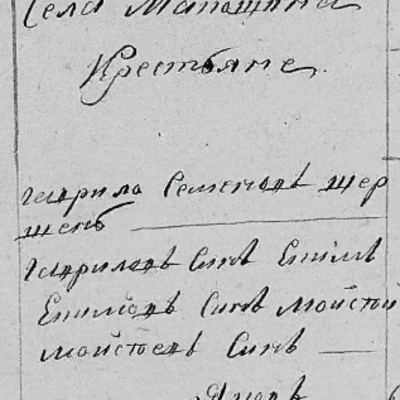 Села Мапошина
Крестьяне
Гаврила Семеновъ Щер
шень
Гавриловъ Синъ Епимъ
Епимовъ Синъ Мойсей
Мойсеевъ Синъ